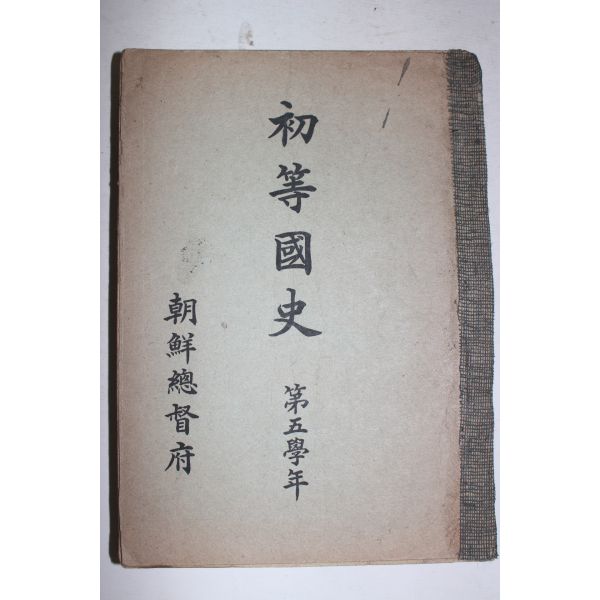 初等國史
第五學年
朝鮮總督府